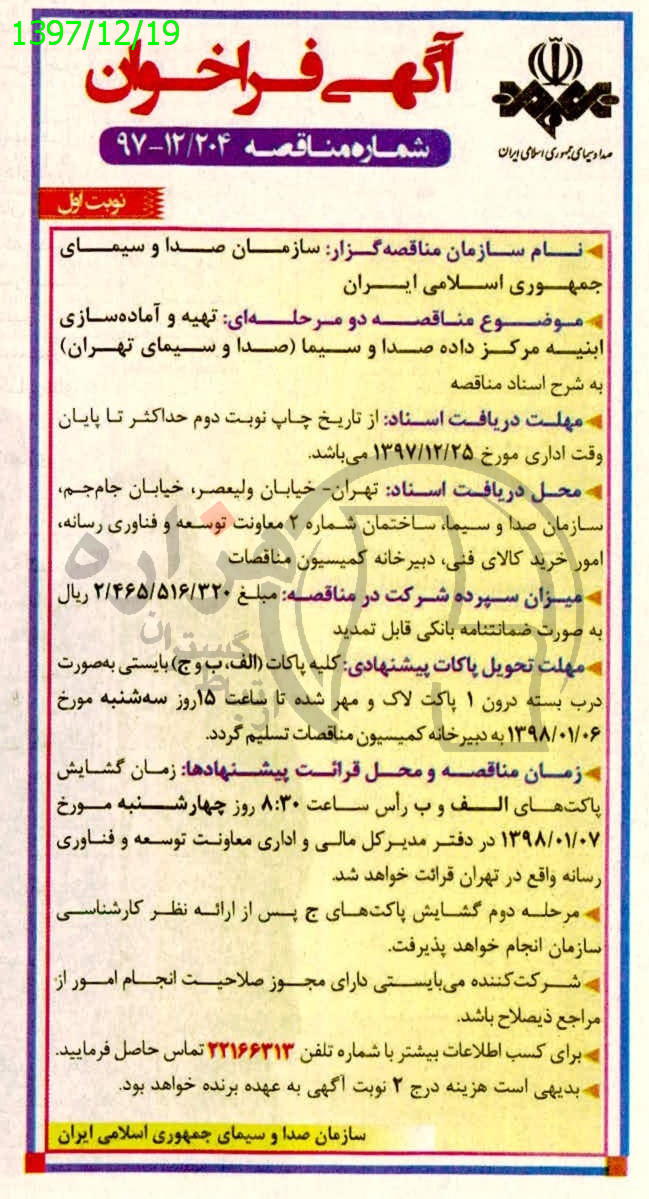 1397/12/19
آگهی فراخوان
صدا و سیمای جمهوری اسلامی ایران
شماره مناقصه ۱۲/۲۰۴-۹۷
نوبت اول
نام سازمان مناقصه‌گزار: سازمان صدا و سیمای
جمهوری اسلامی ایران
موضوع مناقصه دو مرحله‌ای: تهیه و آماده‌سازی
ابنیه مرکز داده صدا و سیما (صدا و سیمای تهران)
به شرح اسناد مناقصه
مهلت دریافت اسناد: از تاریخ چاپ نوبت دوم حداکثر تا پایان
وقت اداری مورخ ۱۳۹۷/۱۲/۲۵ می‌باشد.
محل دریافت اسناد: تهران- خیابان ولیعصر، خیابان جام‌جم،
سازمان صدا و سیما، ساختمان شماره ۲ معاونت توسعه و فناوری رسانه،
امور خرید کالای فنی، دبیرخانه کمیسیون مناقصات
میزان سپرده شرکت در مناقصه: مبلغ ۲/۴۶۵/۵۱۶/۳۲۰ ریال
به صورت ضمانتنامه بانکی قابل تمدید
مهلت تحویل پاکات پیشنهادی: کلیه پاکات (الف، ب و ج) بایستی به‌صورت
درب بسته درون ۱ پاکت لاک و مهر شده تا ساعت ۱۵روز سه‌شنبه مورخ
۱۳۹۸/۰۱/۰۶ به دبیرخانه کمیسیون مناقصات تسلیم گردد.
زمان مناقصه و محل قرائت پیشنهادها: زمان گشایش
پاکت‌های الف و ب رأس ساعت ۸:۳۰ روز چهارشنبه مورخ
۱۳۹۸/۰۱/۰۷ در دفتر مدیرکل مالی و اداری معاونت توسعه و فناوری
رسانه واقع در تهران قرائت خواهد شد.
مرحله دوم گشایش پاکت‌های ج پس از ارائه نظر کارشناسی
سازمان انجام خواهد پذیرفت.
شرکت‌کننده می‌بایستی دارای مجوز صلاحیت انجام امور از
مراجع ذیصلاح باشد.
برای کسب اطلاعات بیشتر با شماره تلفن ۲۲۱۶۶۳۱۳ تماس حاصل فرمایید.
بدیهی است هزینه درج ۲ نوبت آگهی به عهده برنده خواهد بود.
سازمان صدا و سیمای جمهوری اسلامی ایران